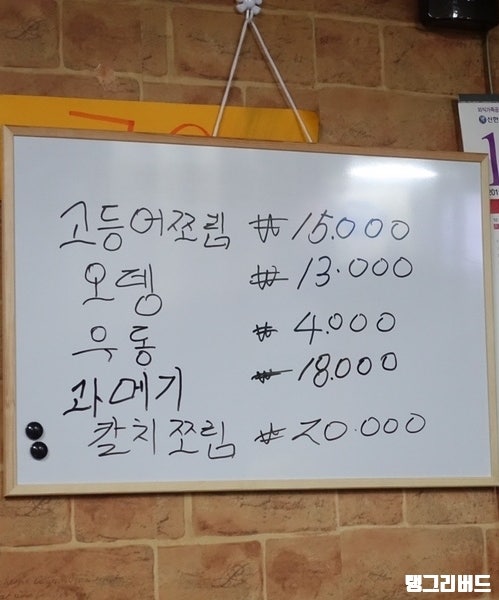 고등어쪼림 ₩15.000
오뎅 ₩13.000
우동 ₩4.000
과메기 ₩18.000
칼치쪼림 ₩20.000
탱그리버드